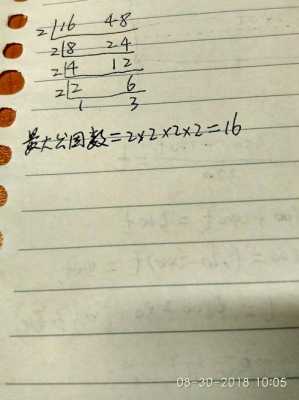 2 16 48
2 8 24
2 4 12
2 2 6
1 3
最大公因数=2×2×2×2=16
08-30-2018 10:05